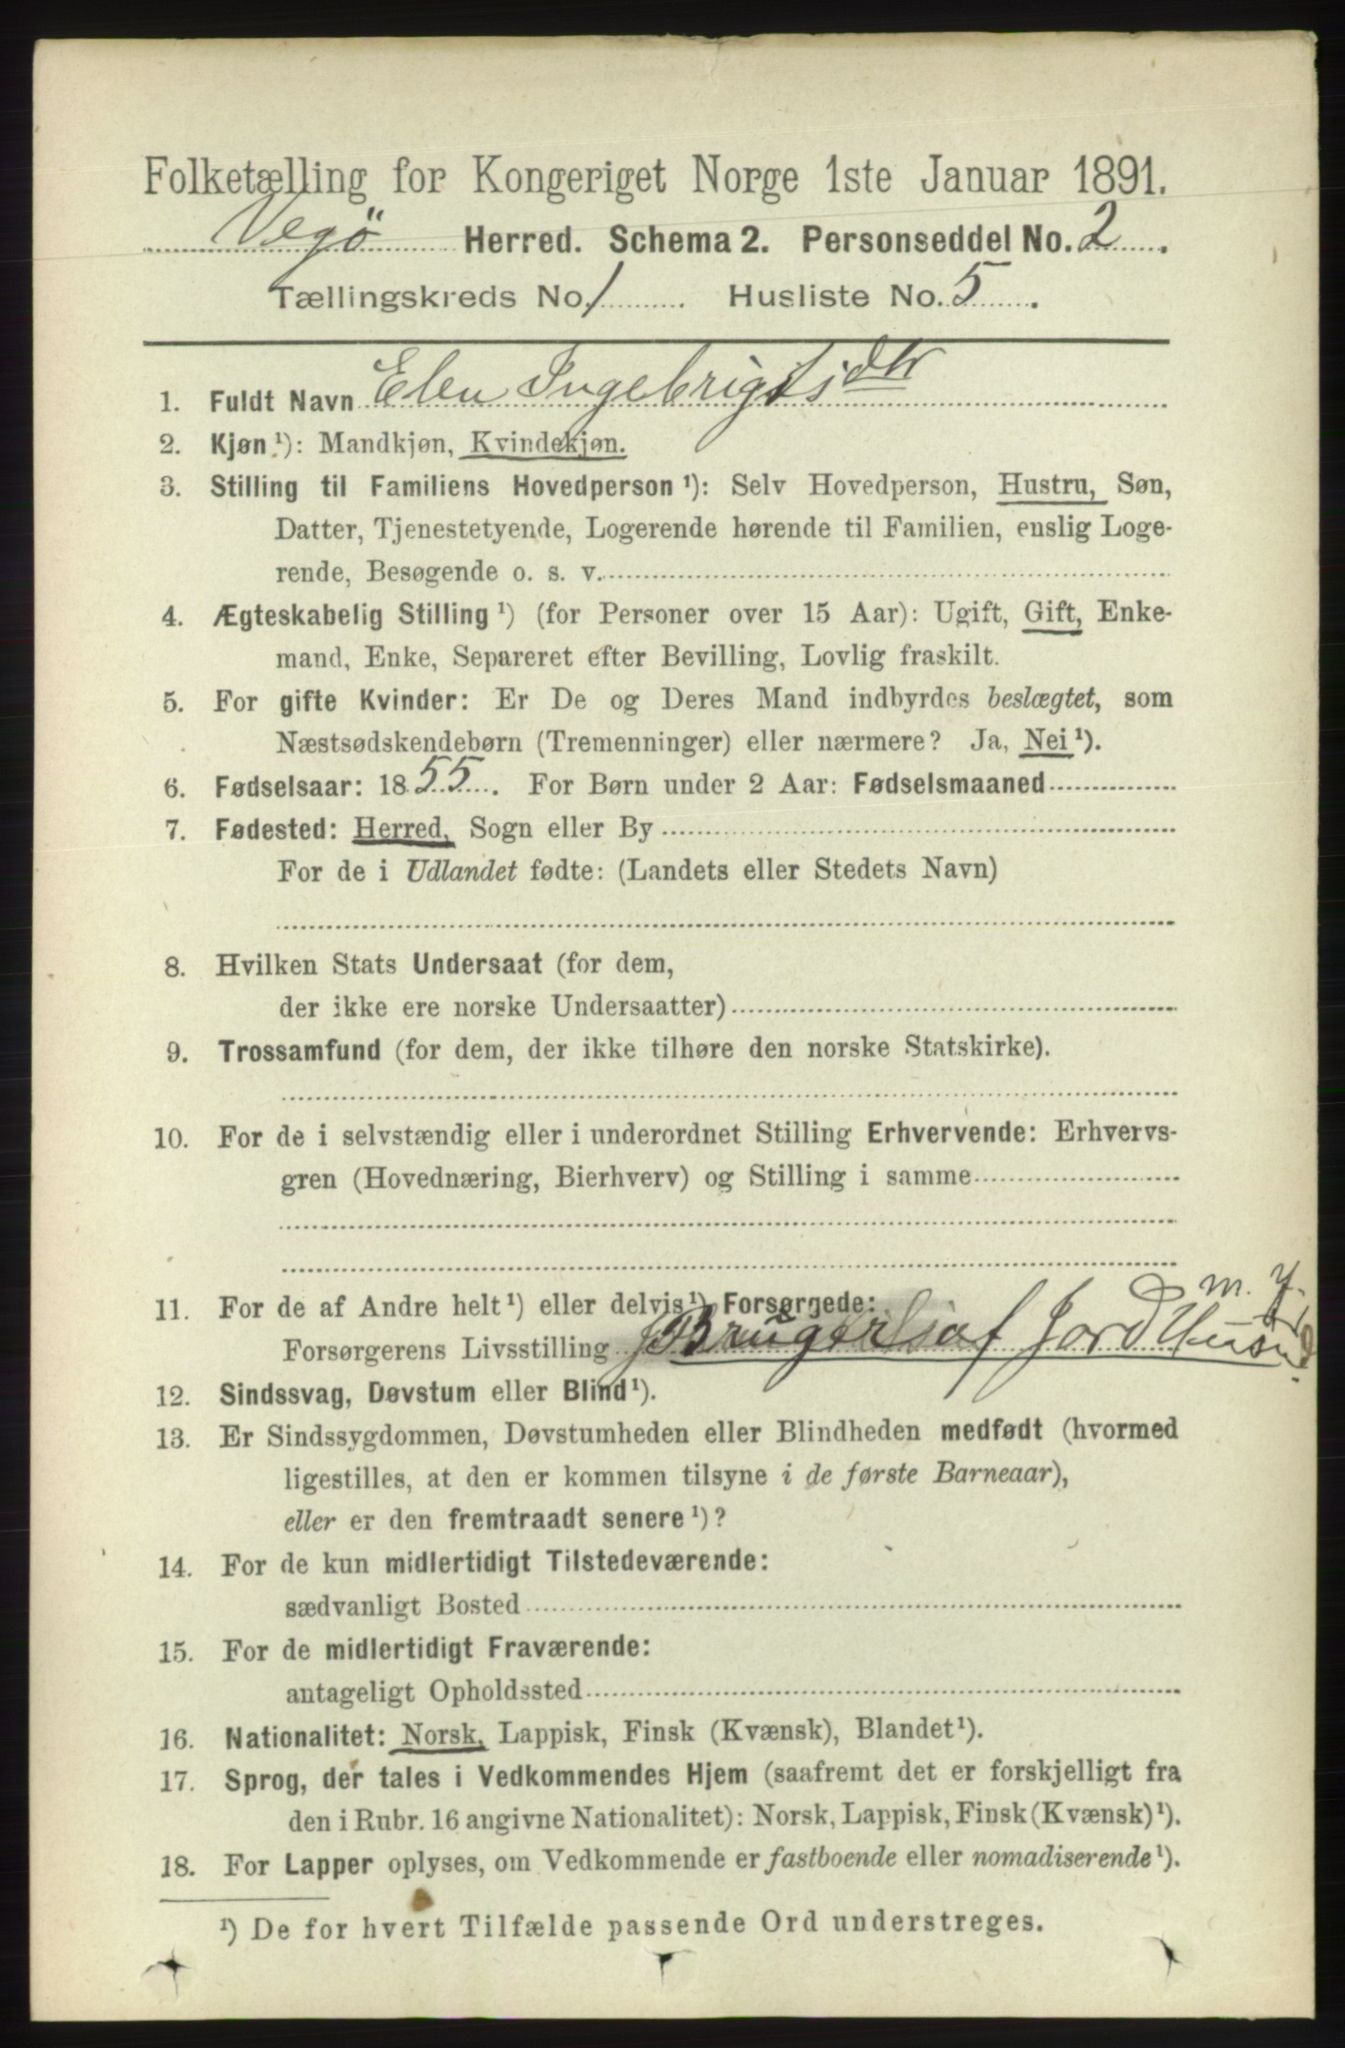 Folketælling for Kongeriget Norge 1ste Januar 1891.
Vegø Herred. Schema 2. Personseddel No. 2.
Tællingskreds No. 1. Husliste No. 5.
1. Fuldt Navn Elen Ingebrigtsdtr
2. Kjøn¹): Mandkjøn, Kvindekjøn.
3. Stilling til Familiens Hovedperson¹): Selv Hovedperson, Hustru, Søn,
Datter, Tjenestetyende, Logerende hørende til Familien, enslig Loge-
rende, Besøgende o. s. v.
4. Ægteskabelig Stilling¹) (for Personer over 15 Aar): Ugift, Gift, Enke-
mand, Enke, Separeret efter Bevilling, Lovlig fraskilt.
5. For gifte Kvinder: Er De og Deres Mand indbyrdes beslægtet, som
Næstsødskendebørn (Tremenninger) eller nærmere? Ja, Nei¹).
6. Fødselsaar: 1855. For Børn under 2 Aar: Fødselsmaaned
7. Fødested: Herred, Sogn eller By
For de i Udlandet fødte: (Landets eller Stedets Navn)
8. Hvilken Stats Undersaat (for dem,
der ikke ere norske Undersaatter)
9. Trossamfund (for dem, der ikke tilhøre den norske Statskirke).
10. For de i selvstændig eller i underordnet Stilling Erhvervende: Erhvervs-
gren (Hovednæring, Bierhverv) og Stilling i samme
11. For de af Andre helt¹) eller delvis¹) Forsørgede:
Forsørgerens Livsstilling Bruger af Jord m.
12. Sindssvag, Døvstum eller Blind¹).
13. Er Sindssygdommen, Døvstumheden eller Blindheden medfødt (hvormed
ligestilles, at den er kommen tilsyne i de første Barneaar),
eller er den fremtraadt senere¹)?
14. For de kun midlertidigt Tilstedeværende:
sædvanligt Bosted
15. For de midlertidigt Fraværende:
antageligt Opholdssted
16. Nationalitet: Norsk, Lappisk, Finsk (Kvænsk), Blandet¹).
17. Sprog, der tales i Vedkommendes Hjem (saafremt det er forskjelligt fra
den i Rubr. 16 angivne Nationalitet): Norsk, Lappisk, Finsk (Kvænsk)¹).
18. For Lapper oplyses, om Vedkommende er fastboende eller nomadiserende¹).
¹) De for hvert Tilfælde passende Ord understreges.